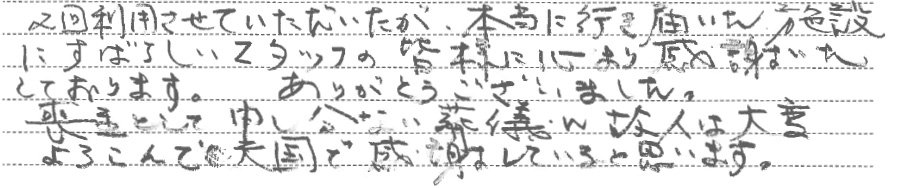 2回利用させていただいたが、本当に行き届いた施設
にすばらしいスタッフの皆様に心より感謝
しております。 ありがとうございました。
として申し分ない葬儀 故人は大変
よろこんで天国で感謝していると思います。